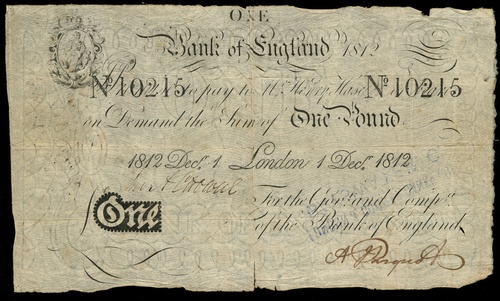 ONE
Bank of England 1812
No. 10215 to pay to Mr. Henry Hase No. 10215
on Demand the Sum of One Pound
1812 Decr. 1 London 1 Decr. 1812
For the Govr. and Compa.
One
of the Bank of England